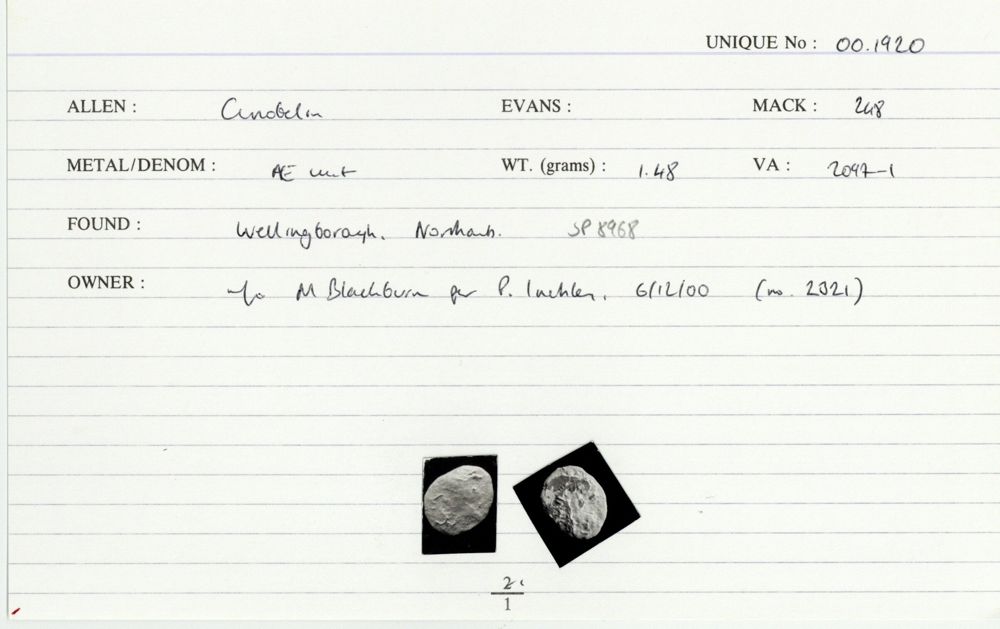 UNIQUE No : 00.1920
ALLEN : Cunobelin EVANS : MACK : 248
METAL/DENOM : AE unit WT. (grams) : 1.48 VA : 2097-1
FOUND : Wellingborough. Northants. SP 8968
OWNER : M Blackburn per P. 6/12/00 (no. 2321)
2
1